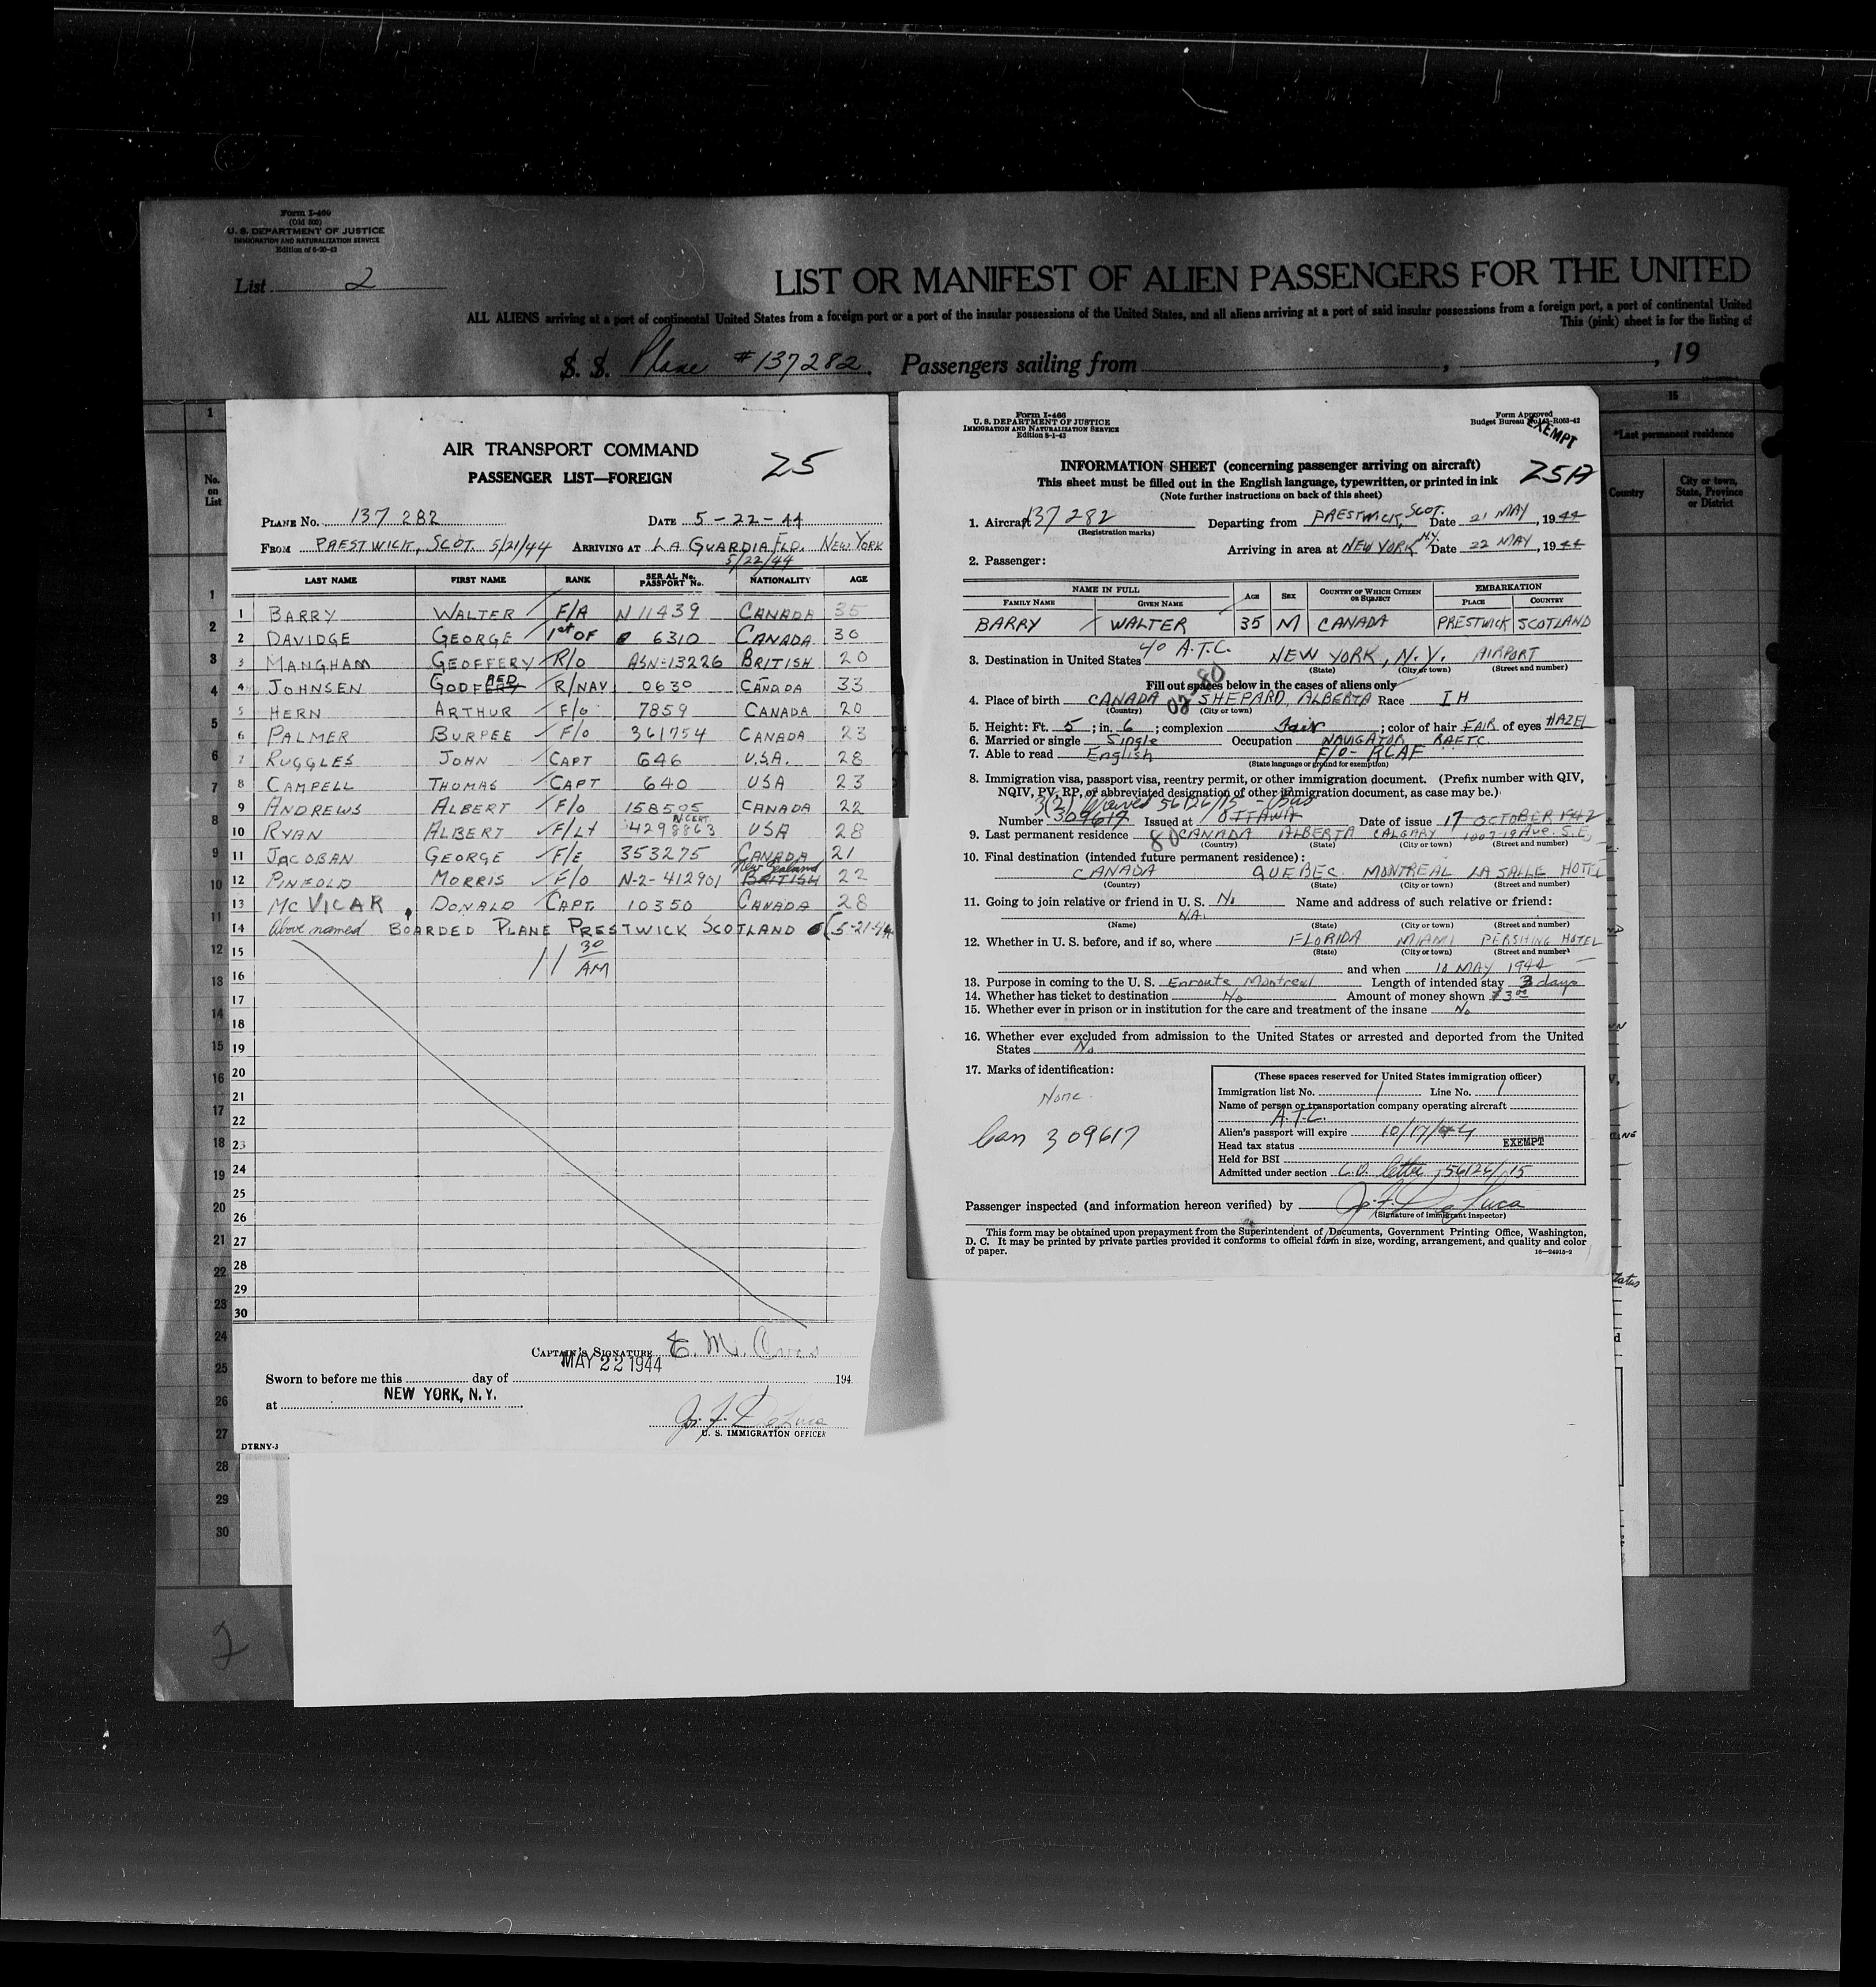 Form I-460
(Old 500)
U. S. DEPARTMENT OF JUSTICE
IMMIGRATION AND NATURALIZATION SERVICE
Edition of 6-20-42
List 2
LIST OR MANIFEST OF ALIEN PASSENGERS FOR THE UNITED
ALL ALIENS arriving at a port of continental United States from a foreign port or a port of the insular possessions of the United States, and all aliens arriving at a port of said insular possessions from a foreign port, a port of continental United
This (pink) sheet is for the listing of
S. S. Plane #137282. Passengers sailing from , , 19
No. on List
15
*Last permanent residence
Country
City or town, State, Province or District
AIR TRANSPORT COMMAND
PASSENGER LIST—FOREIGN
25
PLANE NO. 137 282 DATE 5-22-44
FROM PRESTWICK, SCOT. 5/21/44 ARRIVING AT LA GUARDIA FLD. NEW YORK
5/22/44
LAST NAME FIRST NAME RANK SERIAL No. PASSPORT No. NATIONALITY AGE
1 BARRY WALTER F/A N 11439 CANADA 35
2 DAVIDGE GEORGE 1st OF 6310 CANADA 30
3 MANGHAM GEOFFERY R/O ASN-13226 BRITISH 20
4 JOHNSEN GODFRED R/NAV 0630 CANADA 33
5 HERN ARTHUR F/O 7859 CANADA 20
6 PALMER BURPEE F/O 361754 CANADA 23
7 RUGGLES JOHN CAPT 646 U.S.A. 28
8 CAMPELL THOMAS CAPT 640 USA 23
9 ANDREWS ALBERT F/O 158505 CANADA 22
10 RYAN ALBERT F/Lt N CERT. 4298863 USA 28
11 JACOBAN GEORGE F/E 353275 CANADA 21
12 PINFOLD MORRIS F/O N-2-412901 BRITISH New Zealand 22
13 MC VICAR DONALD CAPT. 10350 CANADA 28
14 Above named BOARDED PLANE PRESTWICK SCOTLAND (5-21-44
15 11 30 AM
16
17
18
19
20
21
22
23
24
25
26
27
28
29
30
CAPTAIN'S SIGNATURE E. M.
MAY 22 1944
Sworn to before me this day of 194
NEW YORK, N. Y.
at
Jos. F. DeLuca
U. S. IMMIGRATION OFFICER
DTRNY-3
2
Form I-466
U. S. DEPARTMENT OF JUSTICE
IMMIGRATION AND NATURALIZATION SERVICE
Edition 8-1-43
Form Approved
Budget Bureau No. 43-R063-42
EXEMPT
INFORMATION SHEET (concerning passenger arriving on aircraft)
25A
This sheet must be filled out in the English language, typewritten, or printed in ink
(Note further instructions on back of this sheet)
1. Aircraft 137 282 Departing from PRESTWICK, SCOT. Date 21 MAY, 1944
(Registration marks)
Arriving in area at NEW YORK N.Y. Date 22 MAY, 1944
2. Passenger:
NAME IN FULL AGE SEX COUNTRY OF WHICH CITIZEN OR SUBJECT EMBARKATION
FAMILY NAME GIVEN NAME PLACE COUNTRY
BARRY WALTER 35 M CANADA PRESTWICK SCOTLAND
3. Destination in United States % A.T.C. NEW YORK, N.Y. AIRPORT
(State) (City or town) (Street and number)
Fill out spaces below in the cases of aliens only
4. Place of birth CANADA SHEPARD, ALBERTA Race I H
(Country) (City or town)
5. Height: Ft. 5; in. 6; complexion Fair; color of hair FAIR of eyes HAZEL
6. Married or single Single Occupation NAVIGATOR RAFTC
7. Able to read English F/O- RCAF
(State language or ground for exemption)
8. Immigration visa, passport visa, reentry permit, or other immigration document. (Prefix number with QIV,
NQIV, PV, RP, or abbreviated designation of other immigration document, as case may be.)
3(2) Waived 56126/15
Number 309617 Issued at OTTAWA Date of issue 17 OCTOBER 1942
9. Last permanent residence 80 CANADA ALBERTA CALGARY 1007 19 Ave. S.E.
(Country) (State) (City or town) (Street and number)
10. Final destination (intended future permanent residence):
CANADA QUEBEC MONTREAL LA SALLE HOTEL
(Country) (State) (City or town) (Street and number)
11. Going to join relative or friend in U. S. No Name and address of such relative or friend:
NA.
(Name) (State) (City or town) (Street and number)
12. Whether in U. S. before, and if so, where FLORIDA MIAMI PERSHING HOTEL
(State) (City or town) (Street and number)
and when 10 MAY 1944
13. Purpose in coming to the U. S. Enroute Montreal Length of intended stay 3 days
14. Whether has ticket to destination No Amount of money shown $3.00
15. Whether ever in prison or in institution for the care and treatment of the insane No
16. Whether ever excluded from admission to the United States or arrested and deported from the United
States No
17. Marks of identification:
None
Can 309617
(These spaces reserved for United States immigration officer)
Immigration list No. 1 Line No. 1
Name of person or transportation company operating aircraft
A.T.C.
Alien's passport will expire 10/17/44
Head tax status EXEMPT
Held for BSI
Admitted under section C.O. letter 56126/15
Passenger inspected (and information hereon verified) by Jos. F. DeLuca
(Signature of immigrant inspector)
This form may be obtained upon prepayment from the Superintendent of Documents, Government Printing Office, Washington,
D. C. It may be printed by private parties provided it conforms to official form in size, wording, arrangement, and quality and color
of paper.
16—24915-2